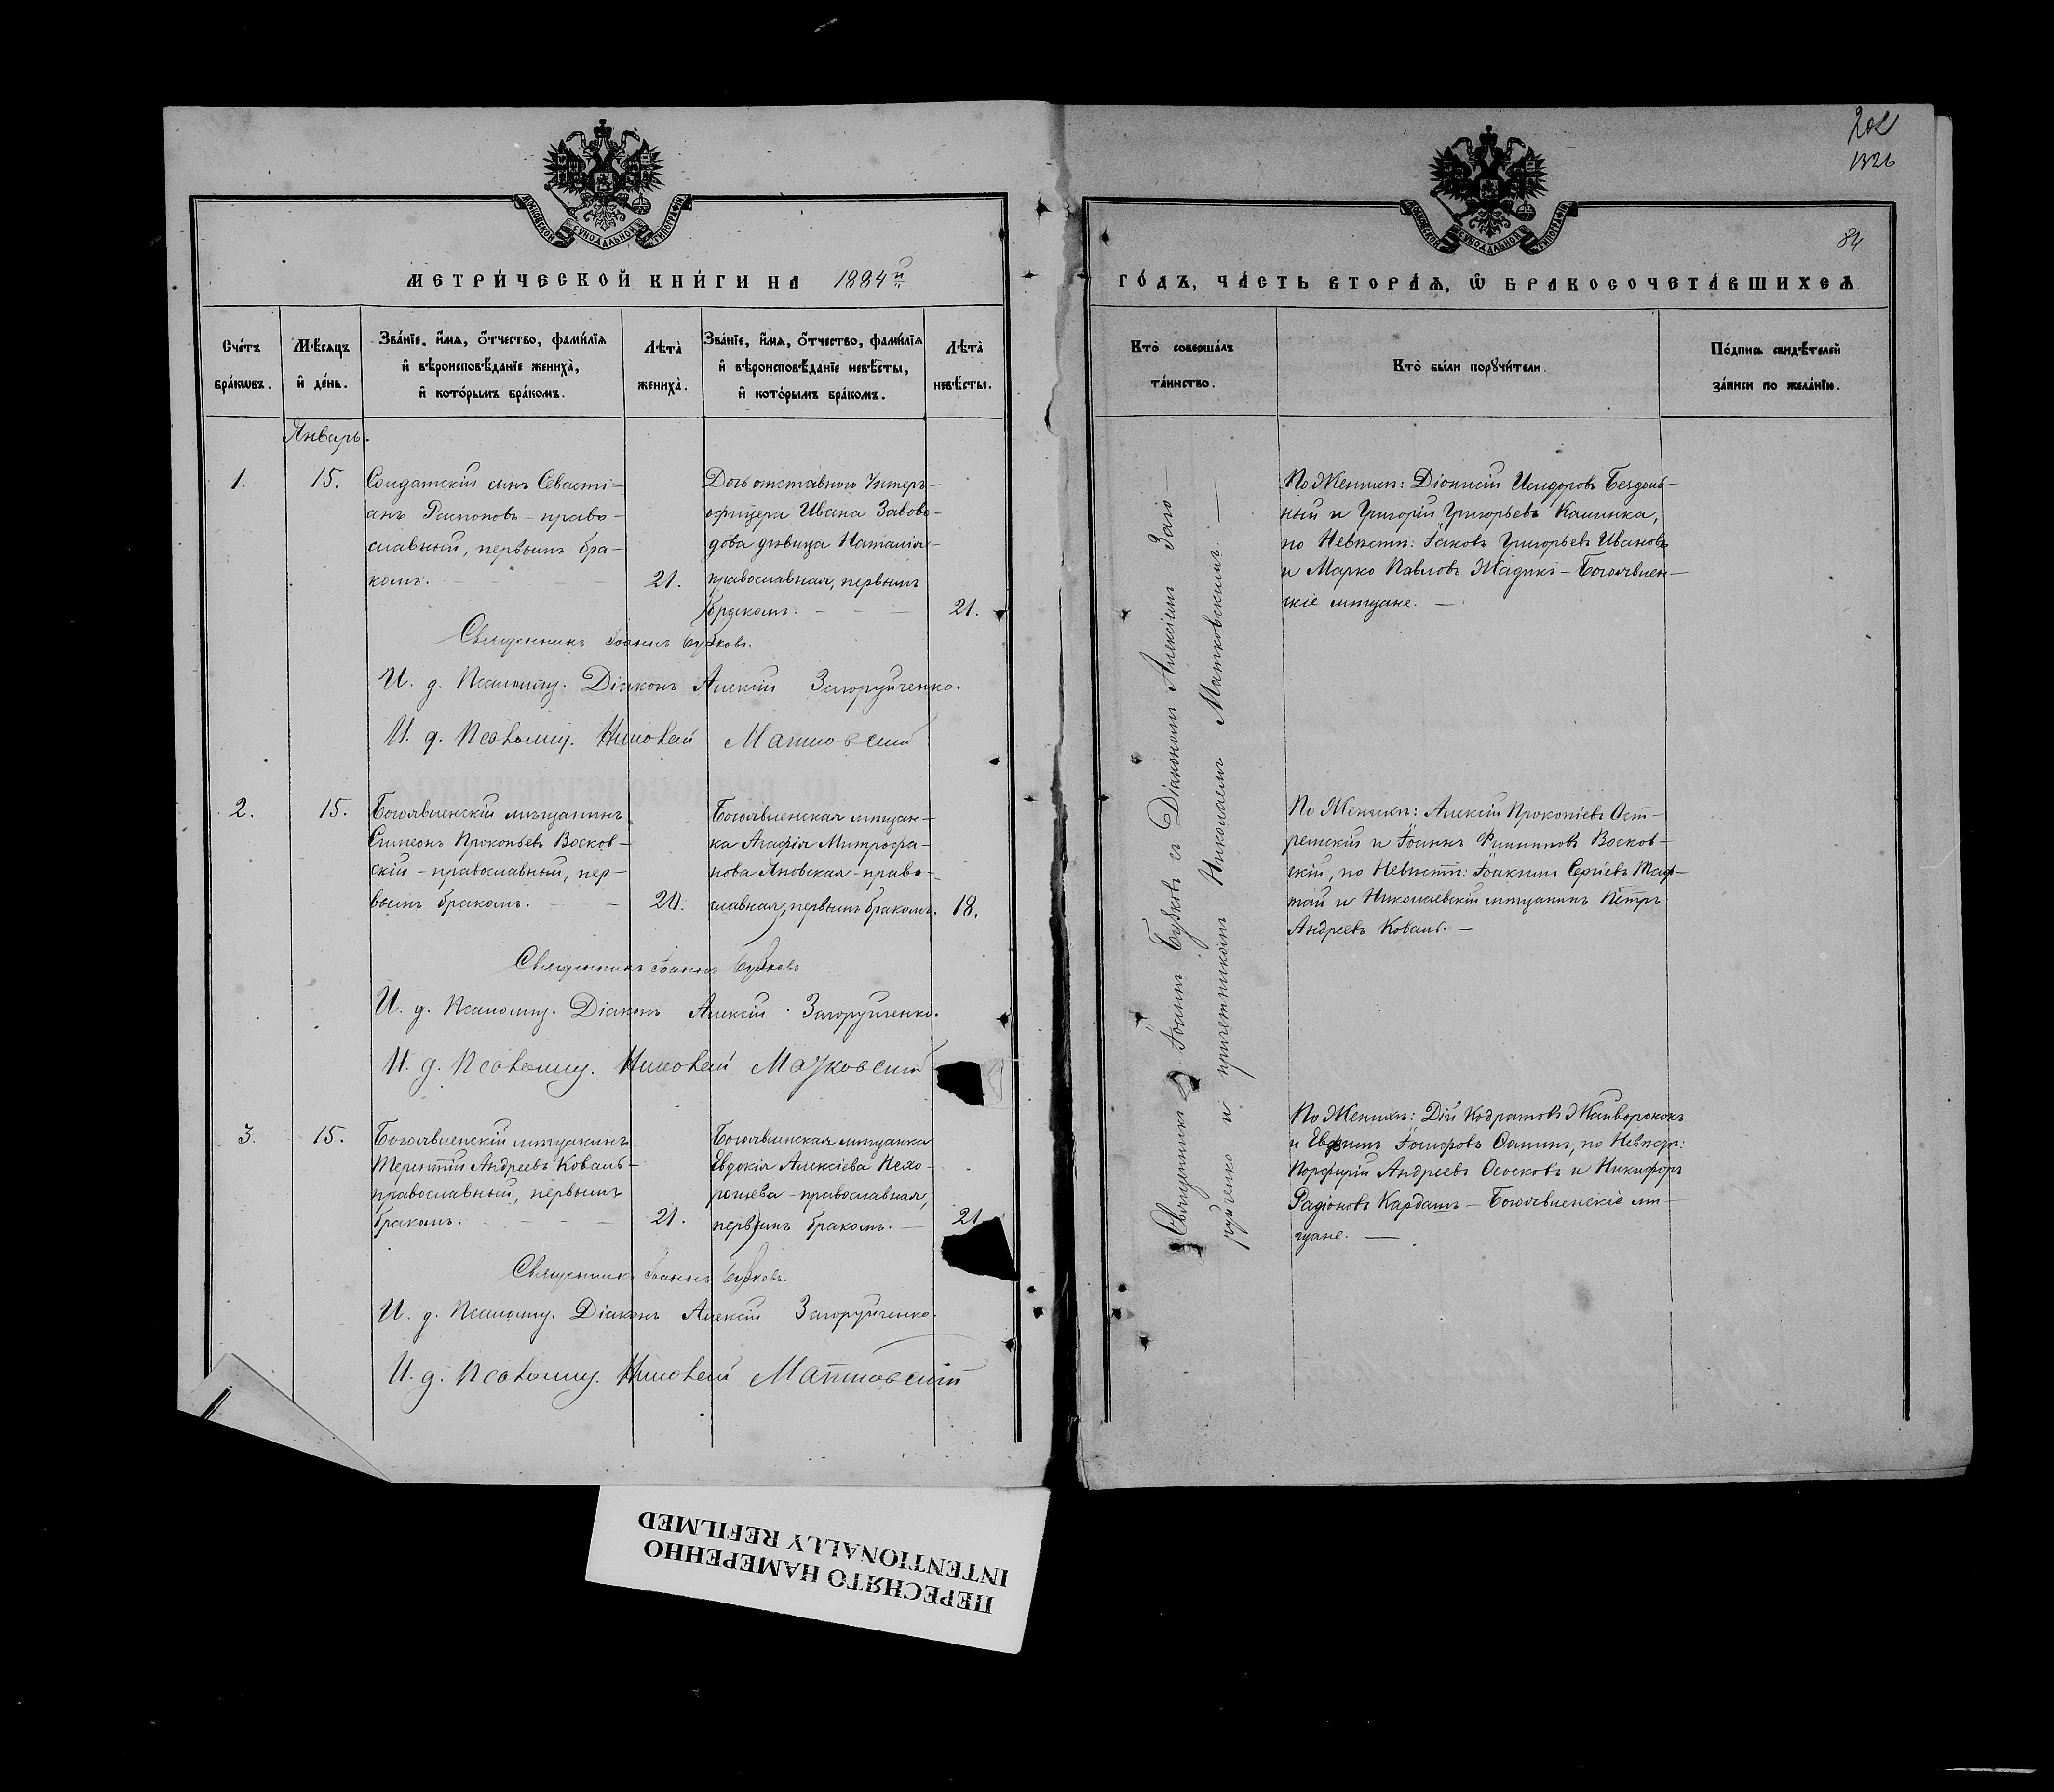 202
1326
84
МОСКОВСКОЙ СѴНОДАЛЬНОЙ ТИПОГРАФІИ
МЕТРИ́ЧЕСКОЙ КНИ́ГИ НА 1884й
Сче́тъ бра́кѡвъ.
Мѣ́сяцъ и҆ де́нь.
Зва́нїе, и҆́мя, ѻ҆́тчество, фами́лїя
и҆ вѣроисповѣ́данїе жениха̀,
и҆ кото́рымъ бра́комъ.
Лѣта̀ жениха̀.
Зва́нїе, и҆́мя, ѻ҆́тчество, фами́лїя
и҆ вѣроисповѣ́данїе невѣ́сты,
и҆ кото́рымъ бра́комъ.
Лѣта̀ невѣ́сты.
Январь.
1.
15.
Солдатскій сынъ Севасті-
анъ Распоповъ - право-
славный, первымъ бра-
комъ.
21.
Дочь отставного Унтеръ-
офицера Ивана Завово-
дова дѣвица Наталія -
православная, первымъ
бракомъ.
21.
Священникъ Іоаннъ Бубковъ.
И. д. Псаломщ. Діаконъ Алексій Загоруйченко.
И. д. Псаломщ. Николай Матковскій
2.
15.
Богоявленскій мѣщанинъ
Симеонъ Прокопьевъ Восков-
скій - православный, пер-
вымъ бракомъ.
20.
Богоявленская мѣщан-
ка Агафія Митрофа-
нова Яновская - право-
славная, первымъ бракомъ.
18.
Священникъ Іоаннъ Бубковъ
И. д. Псаломщ. Діаконъ Алексій Загоруйченко.
И. д. Псаломщ. Николай Матковскій
3.
15.
Богоявленскій мѣщанинъ
Терентій Андреевъ Коваль -
православный, первымъ
бракомъ.
21.
Богоявленская мѣщанка
Евдокія Алексіева Нехо-
рошева - православная,
первымъ бракомъ.
21
Священникъ Іоаннъ Бубковъ.
И. д. Псаломщ. Діаконъ Алексій Загоруйченко.
И. д. Псаломщ. Николай Матковскій
МОСКОВСКОЙ СѴНОДАЛЬНОЙ ТИПОГРАФІИ
ГО́ДЪ, ЧА́СТЬ ВТОРА́Ѧ, Ѡ҆ БРАКОСОЧЕТА́ВШИХСѦ
Кто̀ соверша́лъ
та́инство.
Кто̀ бы́ли порꙋчи́тели.
По́дпись свидѣ́телей
за́писи по жела́нїю.
Священникъ Іоаннъ Бубковъ и Діакономъ Алексіемъ Заго-
руйченко и причетникомъ Николаемъ Матковскимъ.
По Женихѣ: Діонисій Исидоровъ Бездоль-
ный и Григорій Григорьевъ Калинка,
по Невѣстѣ: Іаковъ Григорьевъ Ивановъ
и Марко Павловъ - Богоявлен-
скіе мѣщане.
По Женихѣ: Алексій Прокопіевъ Ост-
ремскій и Іоаннъ Филиповъ Восков-
скій, по Невѣстѣ: Іоакимъ Сергіевъ
и Николаевскій мѣщанинъ Петръ
Андреевъ Коваль.
По Женихѣ: Дій Кодратовъ Жайворонокъ
и Евфимъ, по Невѣстѣ:
Порфирій Андреевъ Ососковъ и Никифоръ
Радіоновъ Кардашъ - Богоявленскіе мѣ-
щане.
ПЕРЕСНЯТО НАМЕРЕННО
INTENTIONALLY REFILMED